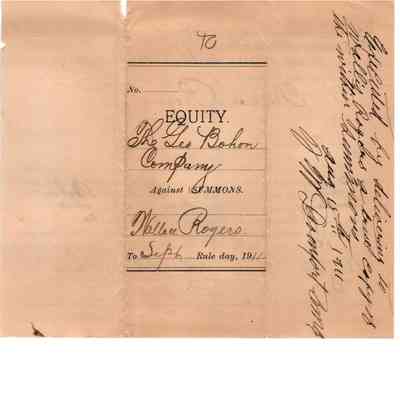 No.
EQUITY.
The Geo Bohon
Company
Against SUMMONS.
Wallace Rogers
To Sept Rule day, 1911
Executed by delivering to
Wallace Rogers a true copy of
the within Summons
Aug 15th 1911